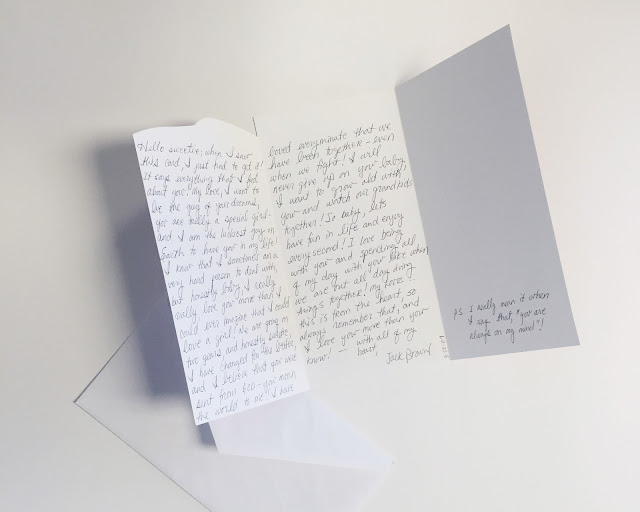 Hello sweetie, when I saw
this card, I just had to get it!
It says everything that I feel
about you. My love, I want to
be the guy of your dreams,
you are really a special girl -
and I am the luckiest guy on
Earth to have you in my life!
I know that I sometimes am a
very hard person to deal with,
but honestly baby, I really
really love you more than I
could ever imagine that I could
love a girl! We are going on
two years and honestly babe,
I have changed for the better,
and I believe that you were
sent from God - you mean
the world to me! I have
loved every minute that we
have been together - even
when we fight! I will
never give up on you baby,
I want to grow old with
you - and watch our grand kids
together! So baby, lets
have fun in life and enjoy
every second! I love being
with you and spending all
of my day with you like when
we are out all day doing
things together! My love
this is from the heart, so
always remember that, and
I love you more than you
know! - with all of my
heart,
Jack Brown
P.S. I really mean it when
I say that, "you are
always on my mind"!